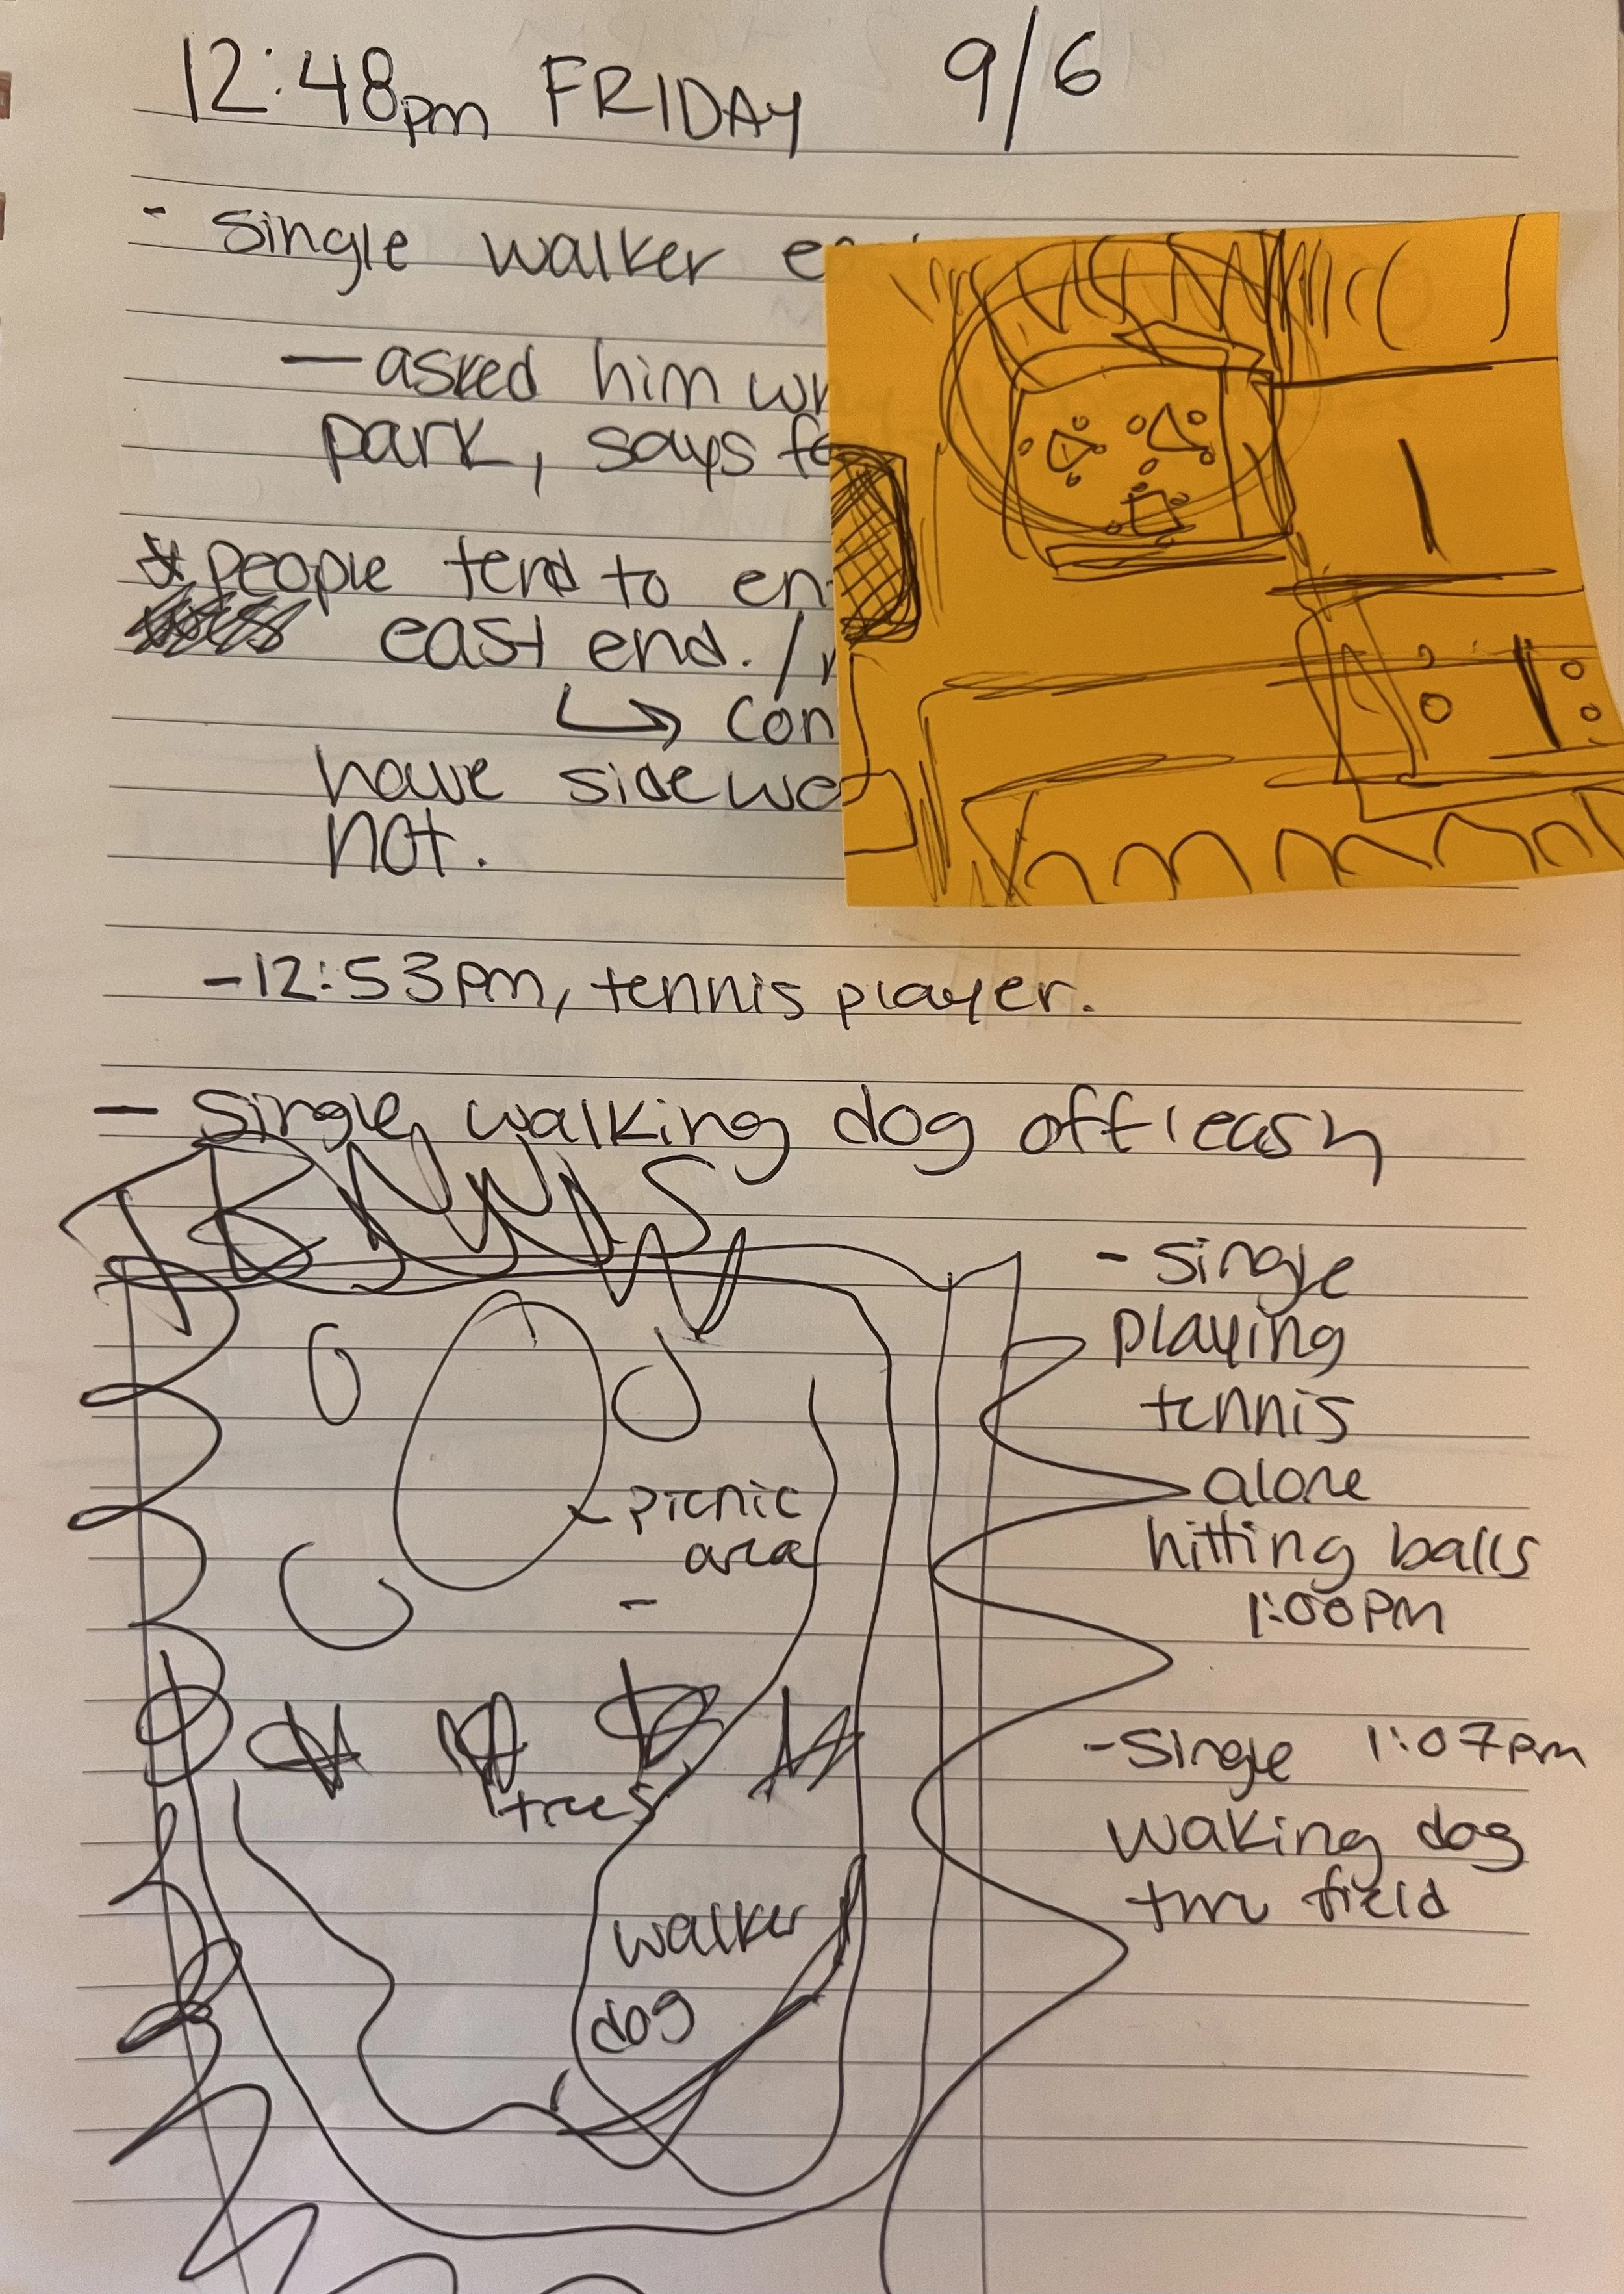 12:48pm FRIDAY 9/6
- single walker
— asked him
park, says
* people tend to
east end. /
↳ con
have
not.
- 12:53pm, tennis player.
— single, walking dog off leash
TENNIS
- single
playing
tennis
alone
hitting balls
1:00PM
picnic
area
-
trees
- single 1:07pm
waking dog
thru field
walker
dog